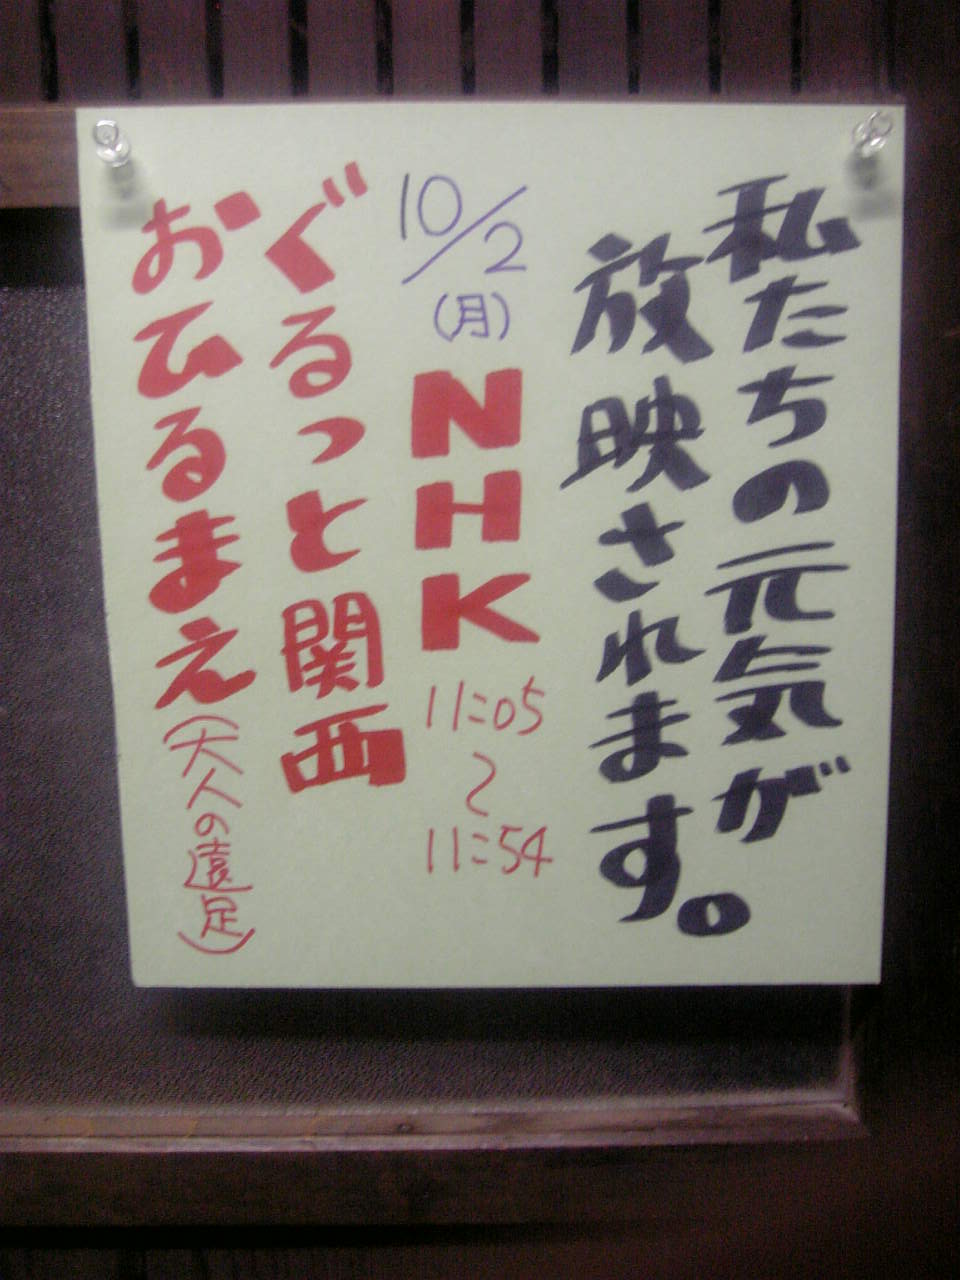 私たちの元気が
放映されます。
10/2
(月)
NHK
11:05
〜
11:54
ぐるっと関西
おひるまえ(大人の遠足)